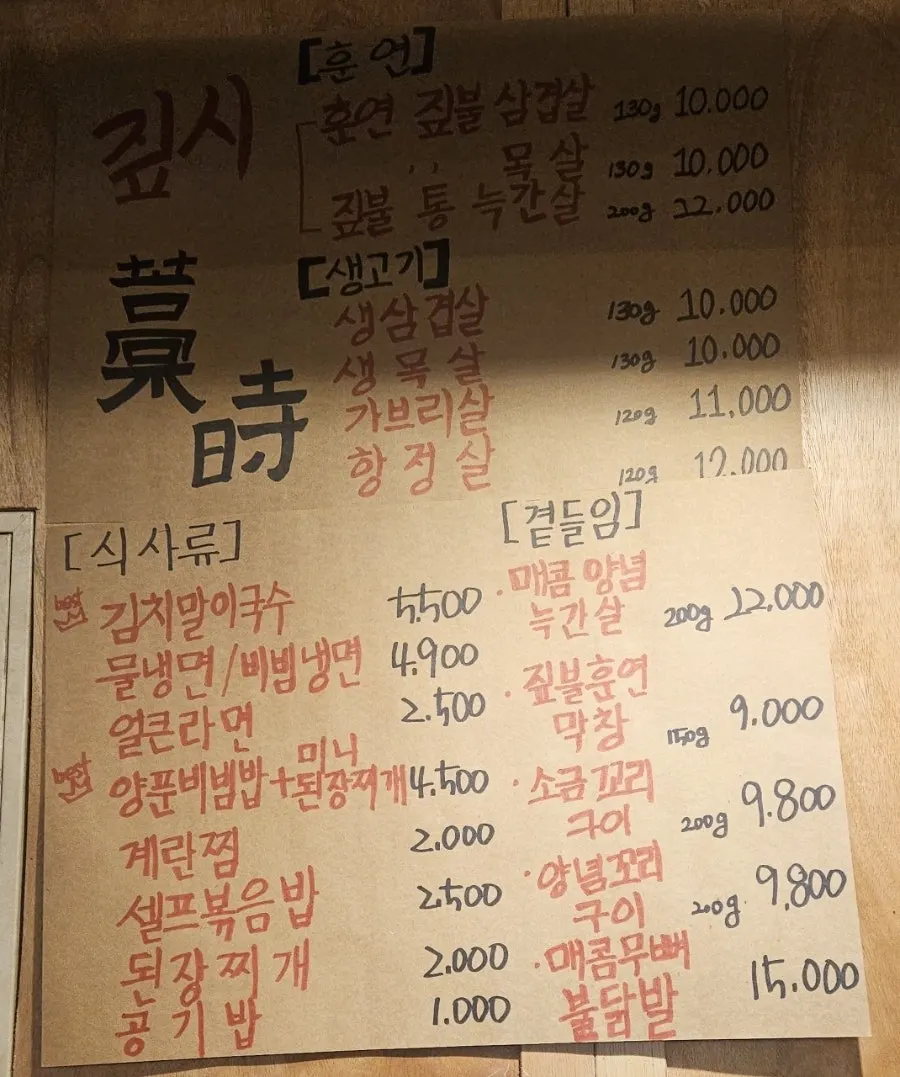 짚시
藁時
[훈연]
훈연 짚불 삼겹살 130g 10.000
,, 목살 130g 10.000
짚불 통 늑간살 200g 12.000
[생고기]
생삼겹살 130g 10.000
생목살 130g 10.000
가브리살 120g 11,000
항정살 120g 12.000
[식사류]
best 김치말이국수 5,500
물냉면/비빔냉면 4.900
얼큰라면 2.500
best 양푼비빔밥+미니 된장찌개 4.500
계란찜 2.000
셀프볶음밥 2.500
된장찌개 2.000
공기밥 1.000
[곁들임]
·매콤 양념
늑간살 200g 12.000
·짚불훈연
막창 150g 9.000
·소금꼬리
구이 200g 9.800
·양념꼬리
구이 200g 9,800
·매콤무뼈
불닭발 15,000